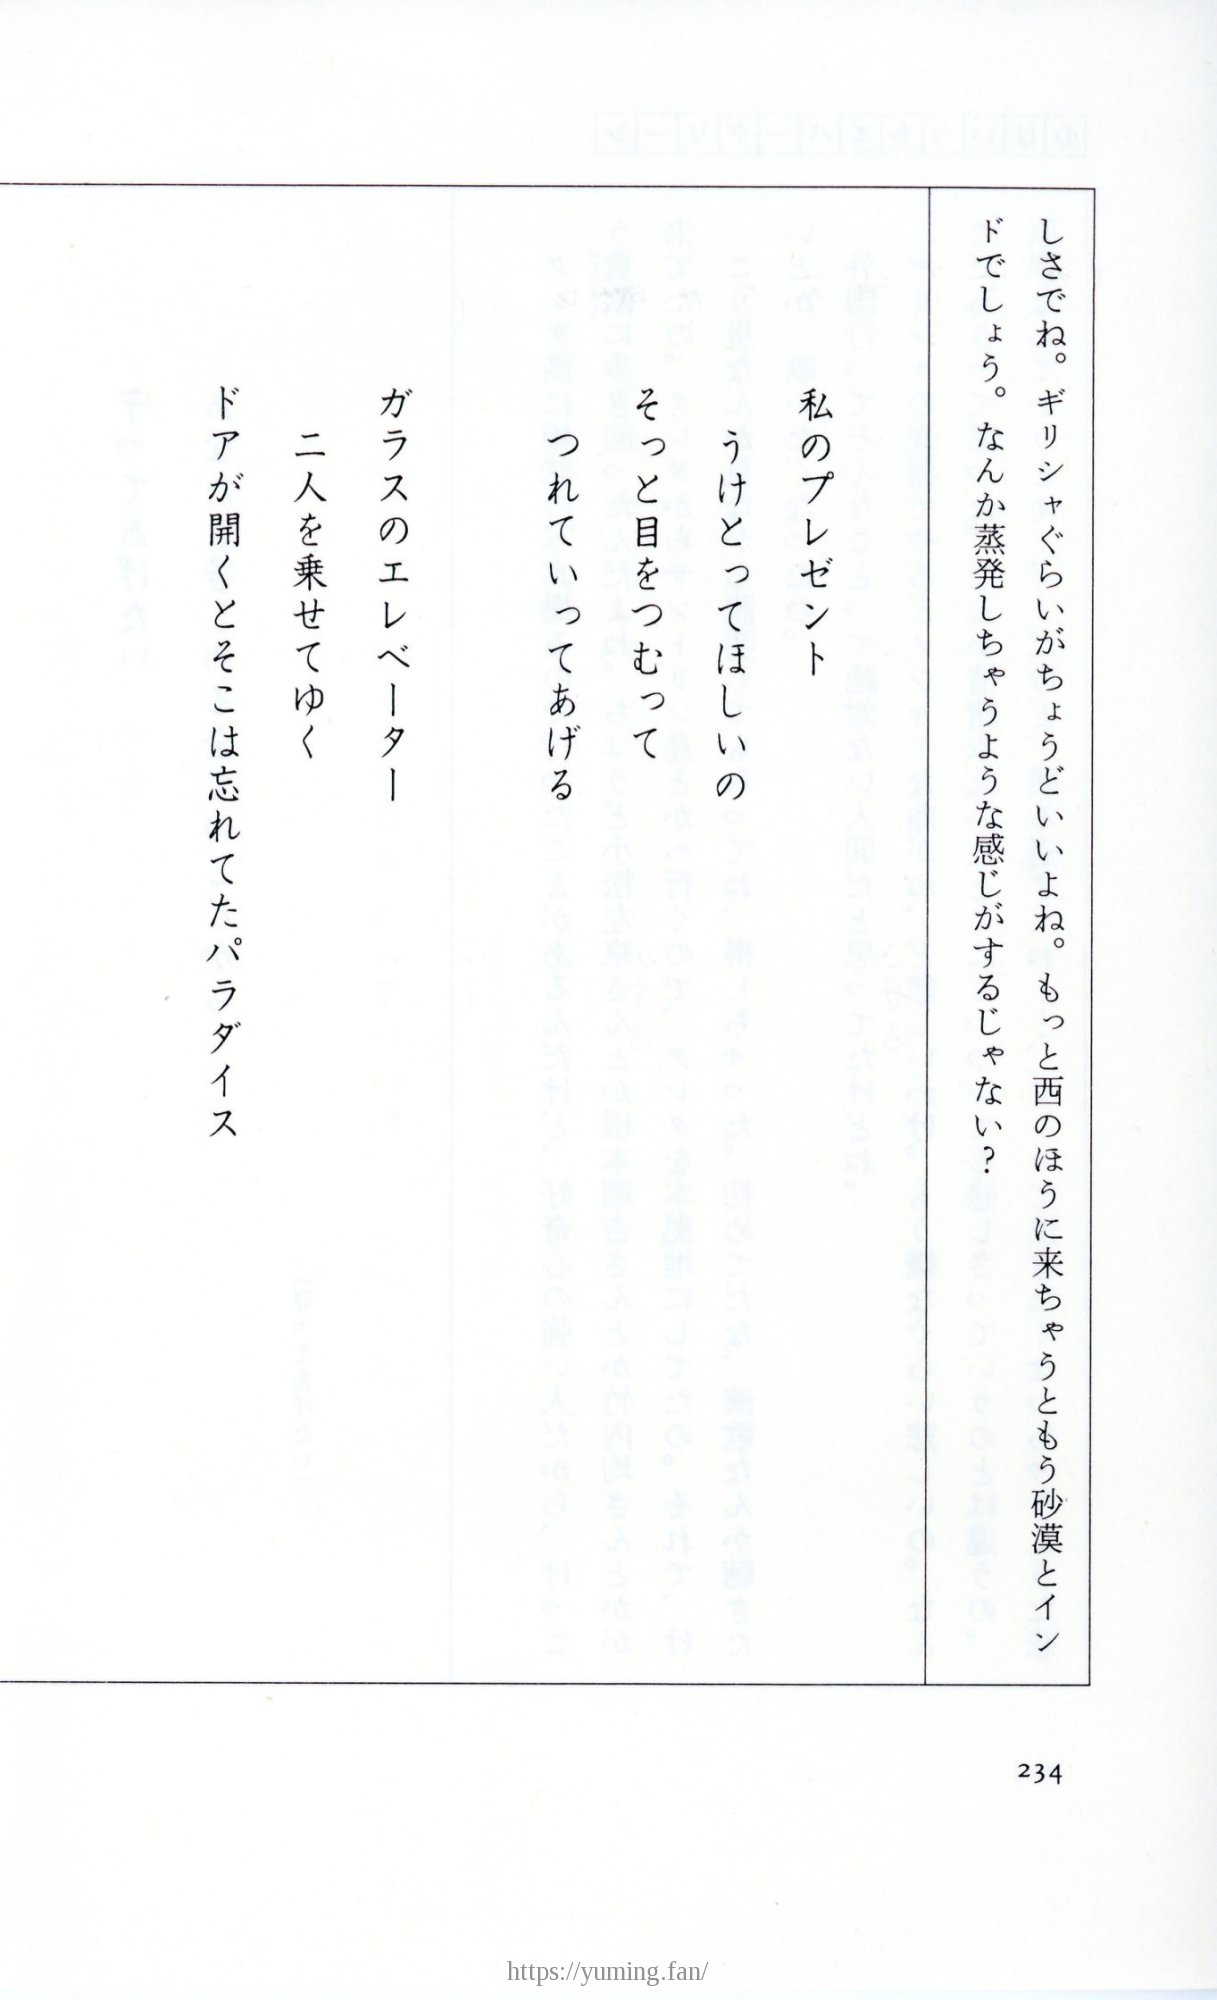 しさでね。ギリシャぐらいがちょうどいいよね。もっと西のほうに来ちゃうともう砂漠とイン
ドでしょう。なんか蒸発しちゃうような感じがするじゃない?
私のプレゼント
うけとってほしいの
そっと目をつむって
つれていってあげる
ガラスのエレベーター
二人を乗せてゆく
ドアが開くとそこは忘れてたパラダイス
234
https://yuming.fan/